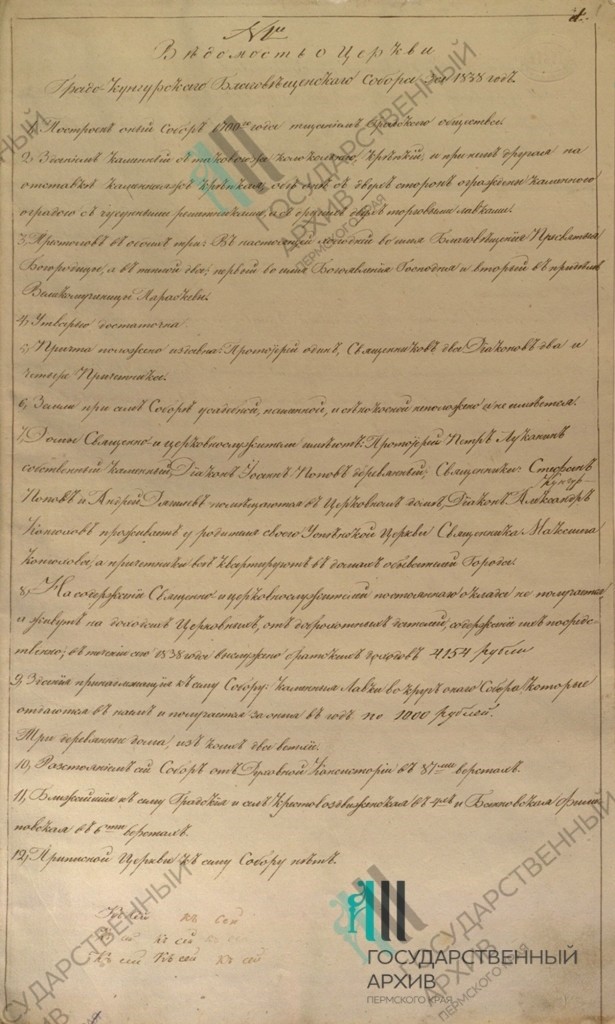 № 1й
Вѣдомость о Церкви
Градо-Кунгурскаго Благовѣщенскаго Собора за 1838 годъ.
1, Построенъ оный Соборъ 1700го года тщаніемъ Градскаго общества.
2, Зданіемъ каменный съ таковою же колокольнею, крѣпкій, и при немъ другая на
каменная же крѣпкая, съ двухъ сторонъ каменною
оградою съ чугунными решетками, а съ другихъ двухъ торговыми лавками.
3, Престоловъ въ ономъ три: Въ настоящей холодной во имя Благовѣщенія Пресвятыя
Богородицы, а въ теплой два; первый во имя Богоявленія Господня и вторый въ придѣлѣ
Великомученицы Параскевы.
4, Утварью достаточна.
5, Причта положено издавна: Протоіерей одинъ, Священниковъ два Діаконовъ два и
четыре Причетника.
6, Земли при семъ Соборѣ усадебной, пашенной, и сѣнокосной неположено и не имѣется.
7, Домы Священно и церковнослужители имѣютъ: Протоіерей Петръ Луканинъ
собственный каменный, Діаконъ Іосифъ Поповъ деревянный; Священники: Стефанъ
Поповъ и Андрей помѣщаются въ Церковномъ домѣ, Діаконъ Александръ
проживаетъ у родителя своего Успенской Церкви Священника Максима
а причетники всѣ квартируютъ въ домахъ обывателей Города.
8, На содержаніе Священно и церковнослужители постояннаго оклада не получаютъ,
и живутъ на доходахъ Церковныхъ, отъ доброхотныхъ дателей, содержаніе ихъ посред-
ственно; въ теченіи сего 1838 года выслужено братскихъ доходовъ 4154 рубли
9, Зданія принадлежащія къ сему Собору: каменныя Лавки вокругъ онаго Собора, которые
отдаются въ наймъ и получается за оныя въ годъ по 1000 рублей.
Три деревянные дома, изъ коихъ два ветхіе.
10, Разстояніемъ сей Соборъ отъ Духовной Консисторіи въ 87ми верстахъ.
11, Ближайшія къ сему Градскія и селъ Крестовоздвиженская въ 4хъ и Филип-
повская въ 6ти верстахъ.
12, Приписной Церкви къ сему Собору нѣтъ.
къ сей
къ сей
къ сей
ГОСУДАРСТВЕННЫЙ
АРХИВ
ПЕРМСКОГО КРАЯ